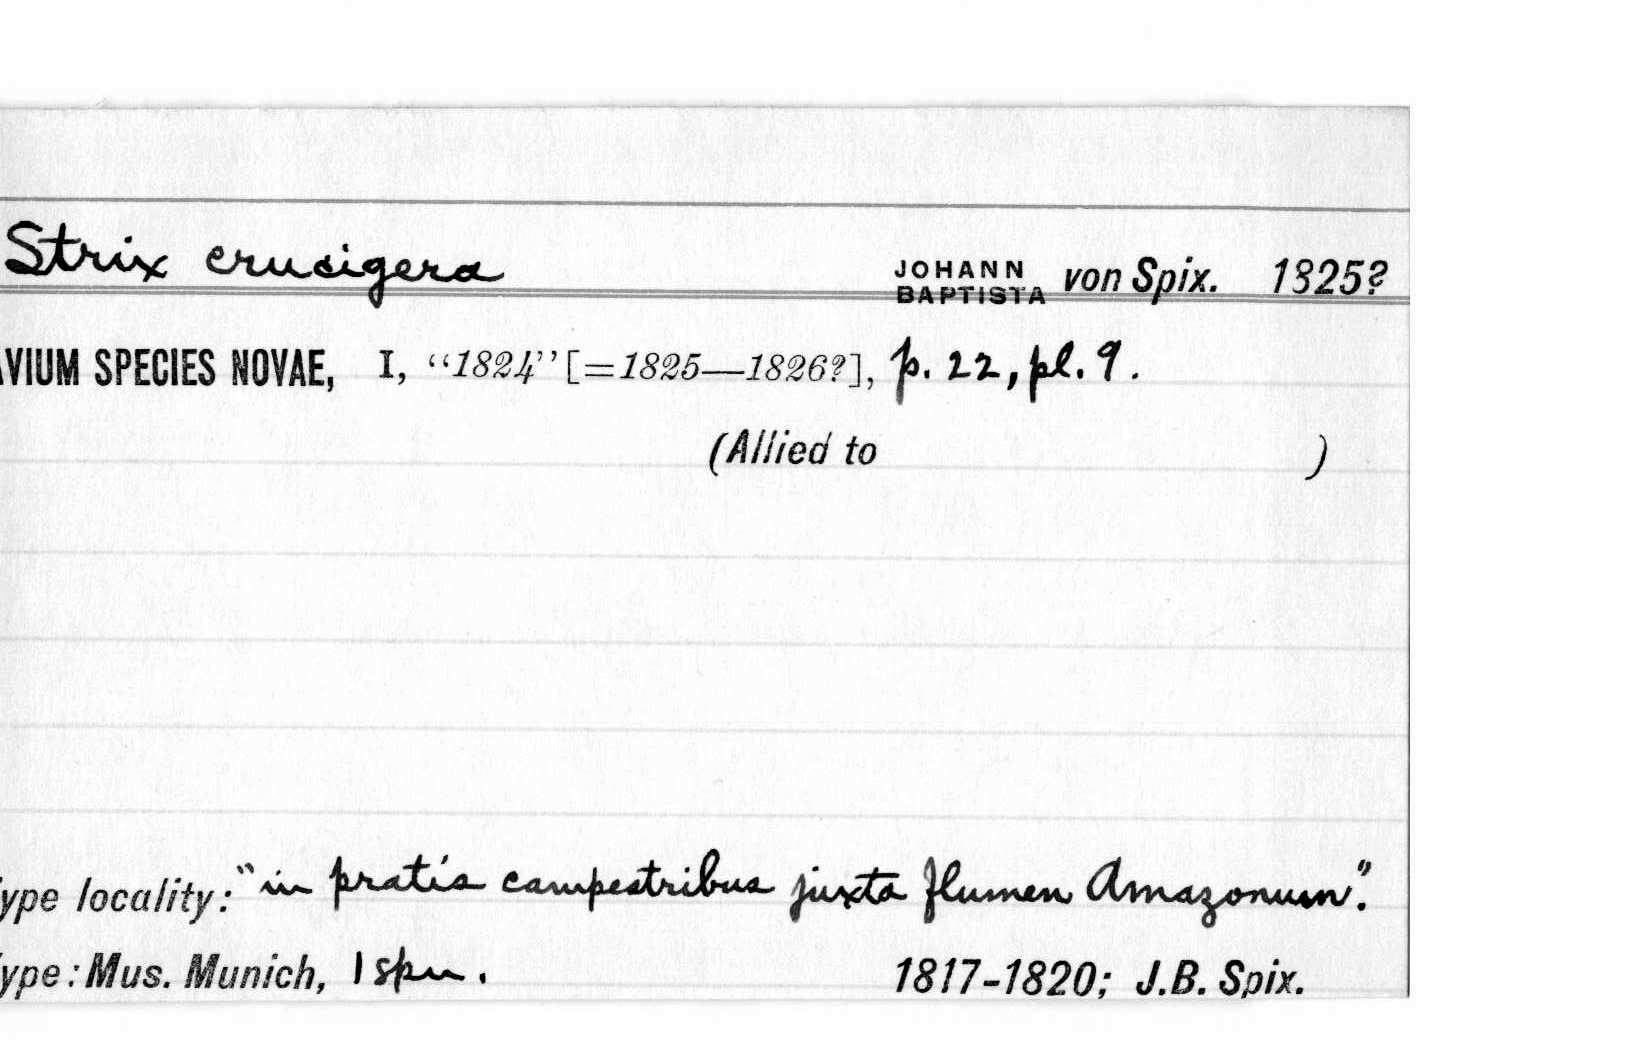 Strix crucigera JOHANN BAPTISTA von Spix. 1825?
AVIUM SPECIES NOVAE, I, “1824” [=1825—1826?], p. 22, pl. 9.
(Allied to )
ype locality: "in pratis campestribus juxta flumen Amazonum".
ype: Mus. Munich, 1 spm. 1817-1820; J.B. Spix.